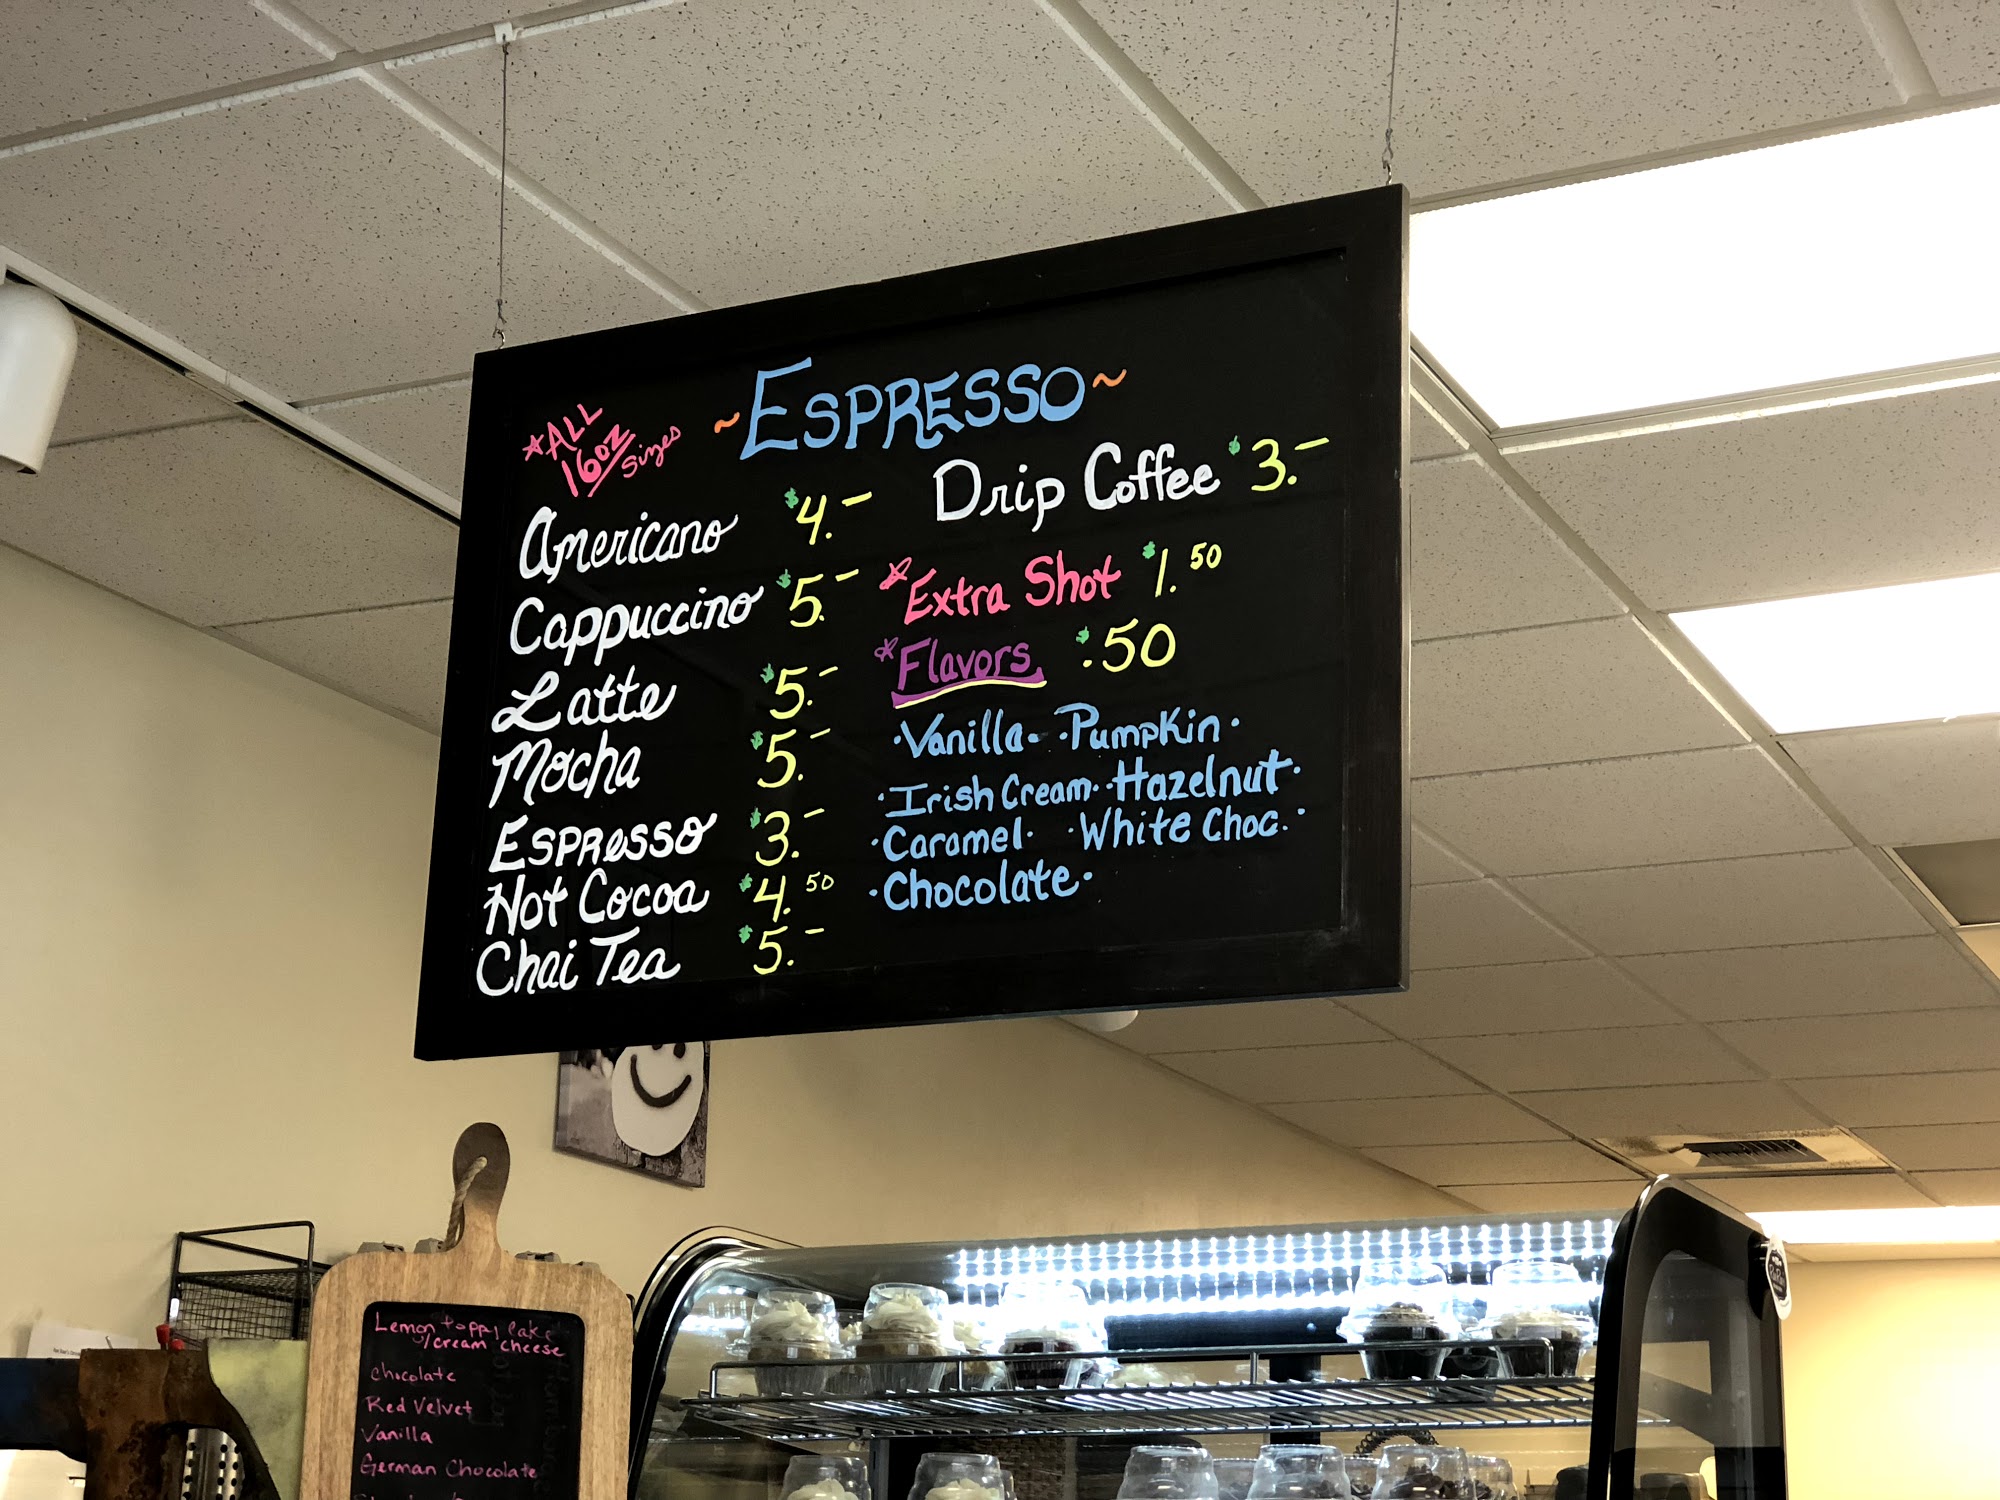 ~ESPRESSO~
*ALL
16oz
Sizes
Americano $4.-
Cappuccino $5.-
Latte $5.-
Mocha $5.-
ESPRESSO $3.-
Hot Cocoa $4.50
Chai Tea $5.-
Drip Coffee $3.-
*Extra Shot $1.50
*Flavors $.50
·Vanilla· ·Pumpkin·
·Irish Cream· ·Hazelnut·
·Caramel· ·White Choc.·
·Chocolate·
Lemon poppy cake
w/cream cheese
chocolate
Red Velvet
Vanilla
German Chocolate